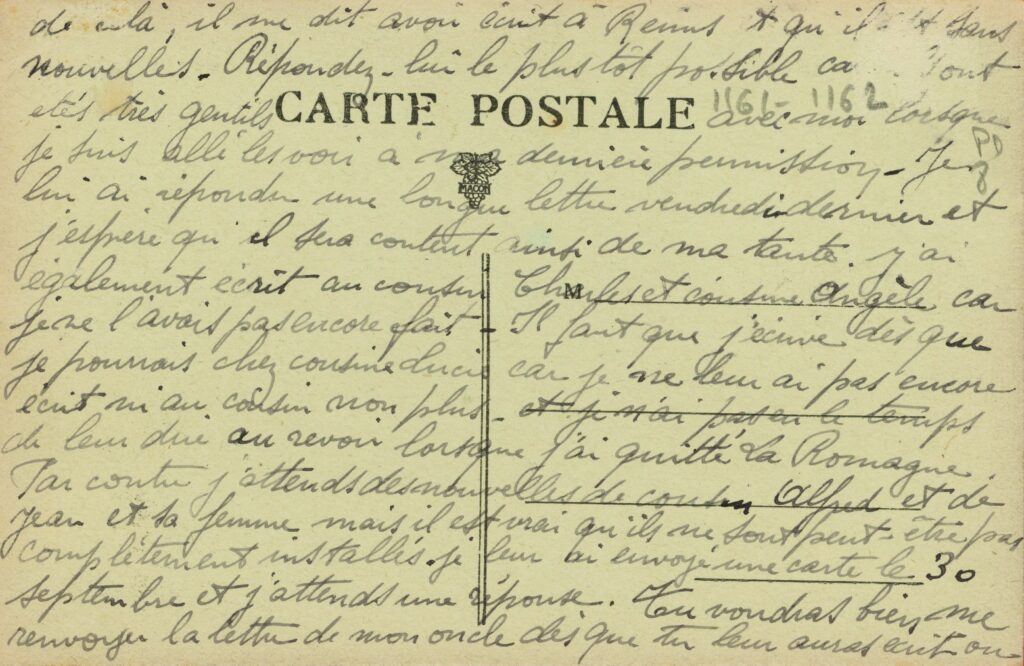 de là, il me dit avoir écrit à Reims et qu'il est sans
nouvelles. Répondez-lui le plus tôt possible ca ont
etés très gentils avec moi lorsque
CARTE POSTALE
1161-1162
PD
8
je suis allé les voir à ma dernière permission. Je
MACON
lui ai répondu une longue lettre vendredi dernier et
j'espère qu'il sera content ainsi de ma tante. j'ai
également écrit au cousin Charles et cousine Angèle car
M
je ne l'avais pas encore fait - Il faut que j'écrive dès que
je pourrais chez cousine Lucie car je ne leur ai pas encore
écrit ni au cousin non plus - et je n'ai pas eu le temps
de leur dire au revoir lorsque j'ai quitté La Romagne.
Par contre j'attends des nouvelles de cousin Alfred et de
Jean et sa femme mais il est vrai qu'ils ne sont peut-être pas
complètement installés. je leur ai envoyé une carte le 30
septembre et j'attends une réponse. Tu voudras bien me
renvoyer la lettre de mon oncle dès que tu leur auras écrit ou